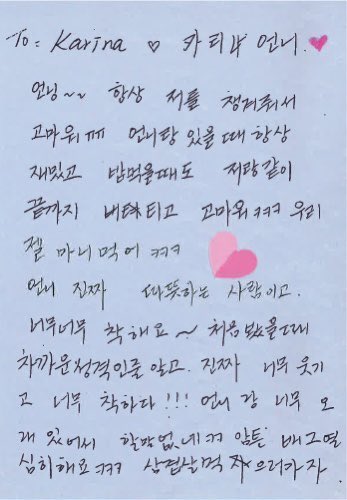 To: Karina ♡ 카리나 언니.♥
언닝~~ 항상 저를 챙겨줘서
고마워ㅠㅠ 언니랑 있을 때 항상
재밌고 밥먹을때도 저랑같이
끝까지 버텨티고 고마워ㅋㅋㅋ 우리
젤 마니먹어 ㅋㅋㅋ
언니 진짜 따뜻하는 사람이고.
너무너무 착해요~ 처음봤을때
차까운성격인줄 알고. 진짜 너무 웃기
고 너무 착하다!!! 언니 강 너무 오
래 있어서 할말없네ㅋㅋ 암튼
심히해요ㅋㅋㅋ 삼겹살먹 으러카자